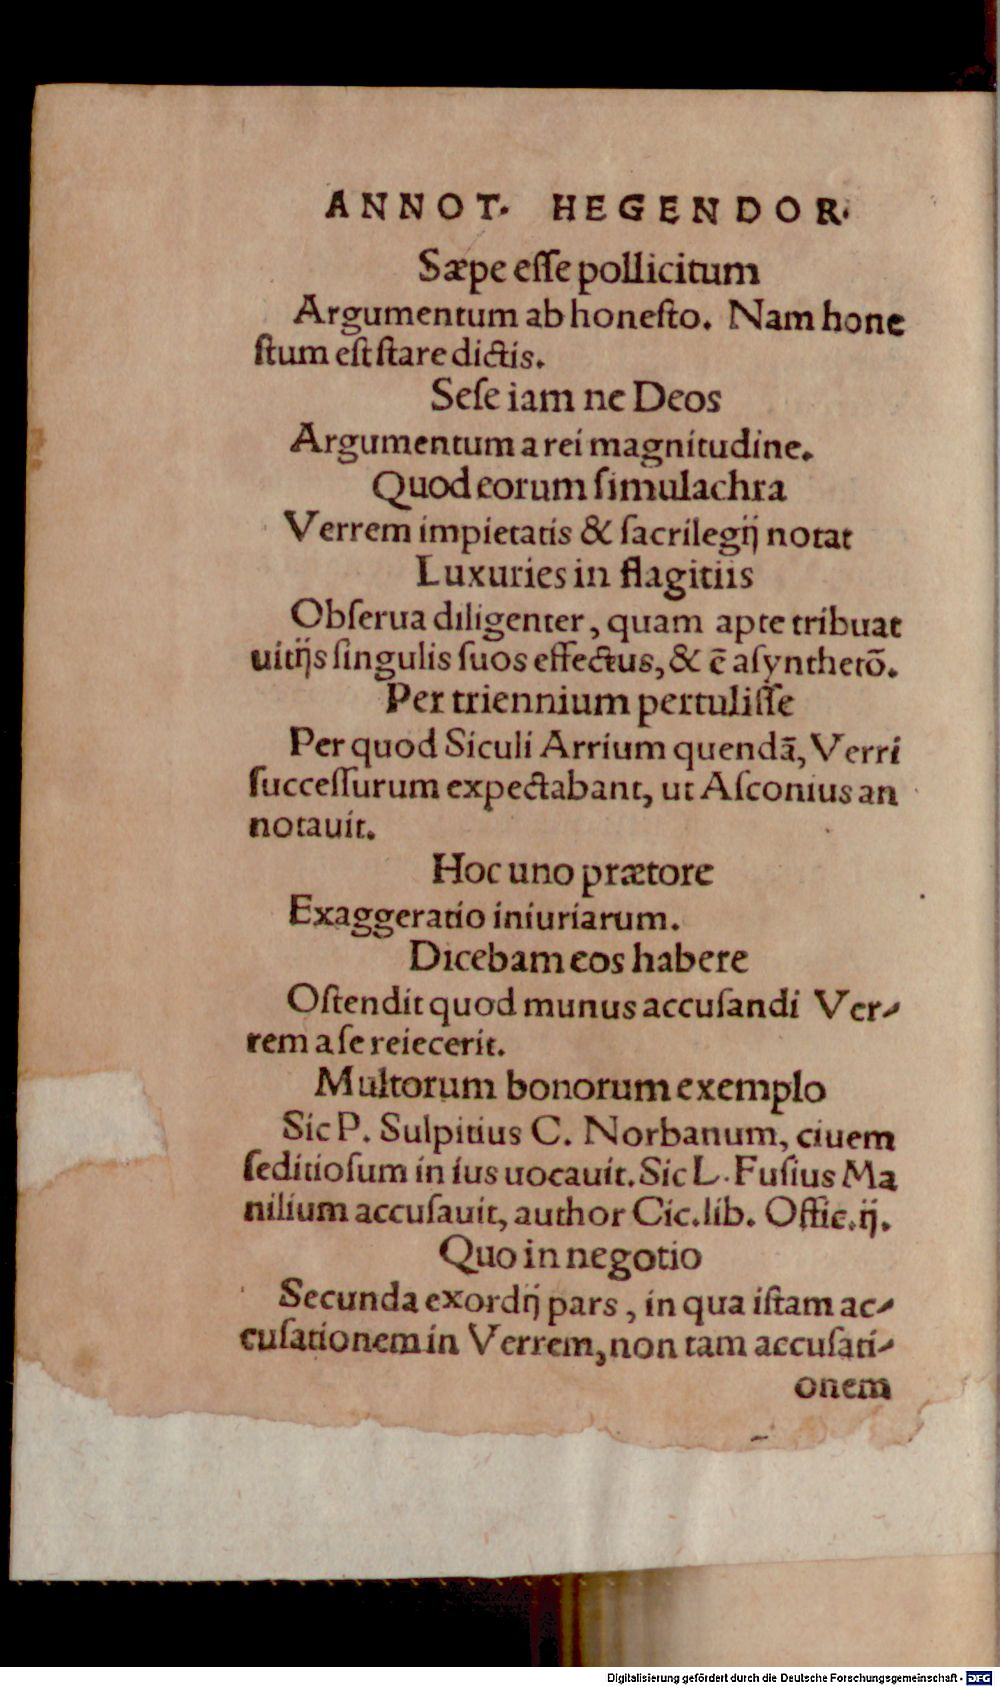 ANNOT. HEGENDOR.
Sæpe eſſe pollicitum
Argumentum ab honeſto. Nam hone
ſtum eſt ſtare dictis.
Seſe iam ne Deos
Argumentum a rei magnitudine.
Quod eorum ſimulachra
Verrem impietatis & ſacrilegij notat
Luxuries in flagitiis
Obſerua diligenter, quam apte tribuat
uitijs ſingulis ſuos effectus, & ē aſynthetō.
Per triennium pertuliſſe
Per quod Siculi Arrium quendā, Verri
ſucceſſurum expectabant, ut Aſconius an
notauit.
Hoc uno prætore
Exaggeratio iniuriarum.
Dicebam eos habere
Oſtendit quod munus accuſandi Ver-
rem a ſe reiecerit.
Multorum bonorum exemplo
Sic P. Sulpitius C. Norbanum, ciuem
ſeditioſum in ius uocauit. Sic L. Fuſius Ma
nilium accuſauit, author Cic. lib. Offic. ij.
Quo in negotio
Secunda exordij pars, in qua iſtam ac-
cuſationem in Verrem, non tam accuſati-
onem
Digitalisierung gefördert durch die Deutsche Forschungsgemeinschaft - DFG